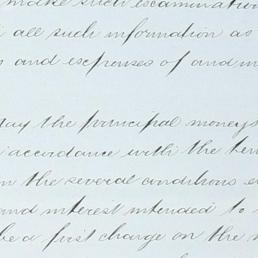 make such examination
all such information as
and expenses of and in
pay the principal moneys
accordance with the ten
the several conditions
and interest intended to
be a first charge on the